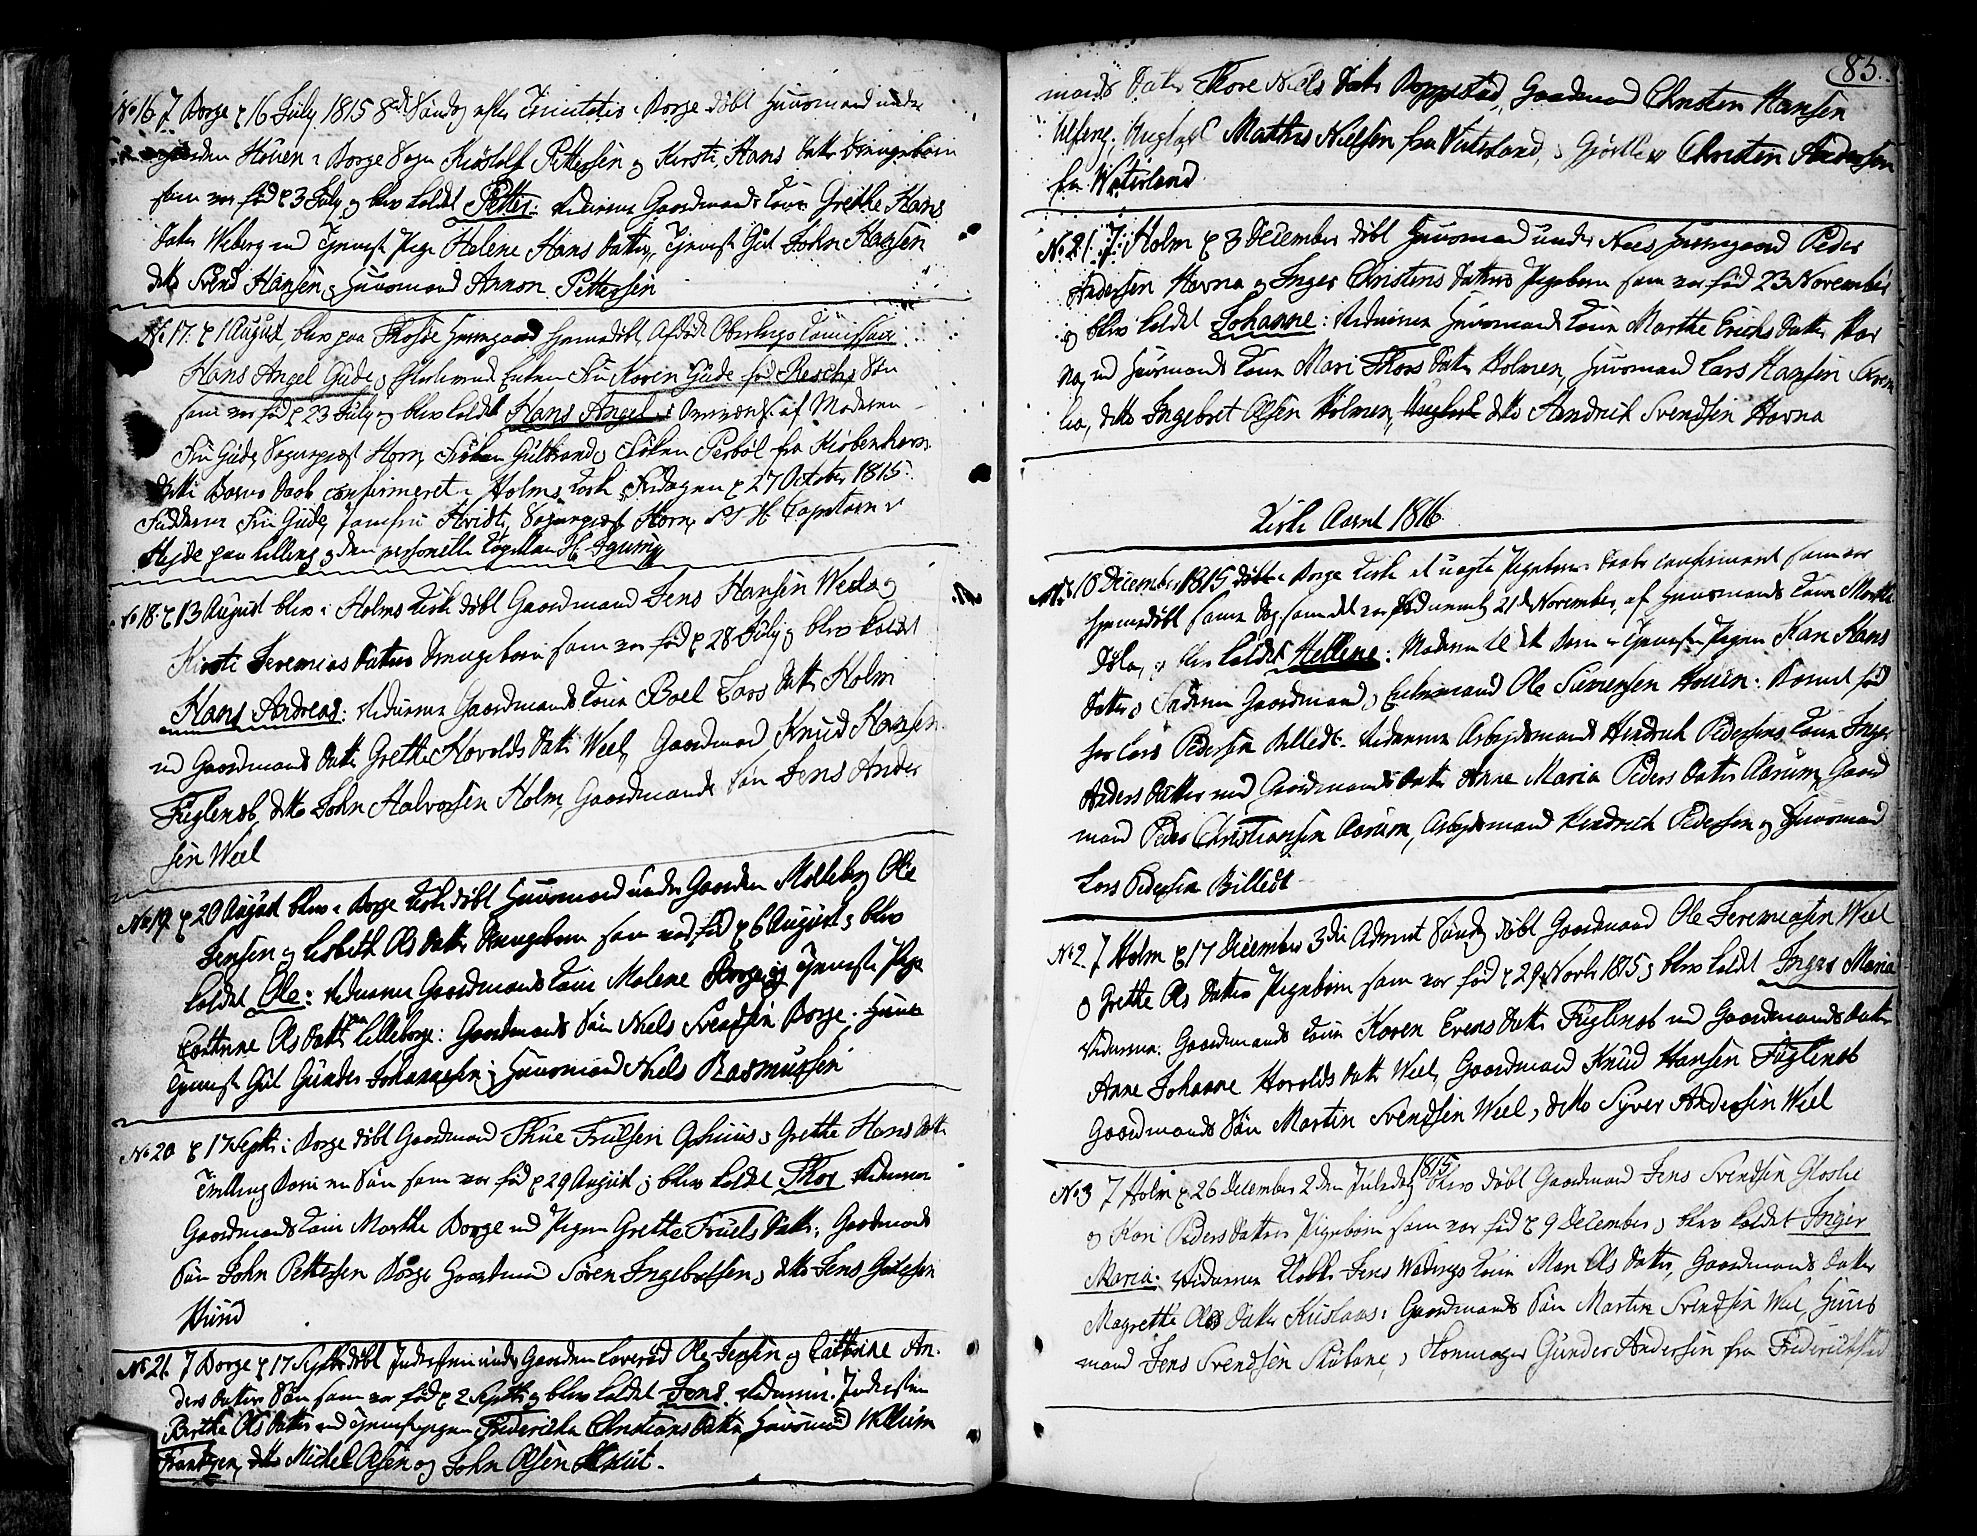 No 16. I Borge d 16 July 1815 8de Søndag efter Trinitatis i Borge døbt Huusmand under
gaarden Houen i Borge Sogn Kiøstolf Pettersen og Kirsti Hans Datters Drengebarn
som var fød d 3 July og blev kaldet Petter: Vidnerne Gaardmands Kone Grethe Hans
Datter Weberg ved Tjeneste Pige Helene Hans Datter, Tjeneste Gut John Hansen
ditto Svend Hansen, Huusmand Arnon Pettersen
No 17. d 1 August blev paa Thosøe Herregaard hjemmedøbt Afdøde Oberkrigs Commissair
Hans Angel Gude og efterlevende Enkes Fru Karen Gude fød Reschs Søn
som var fød d 23 July og blev kaldet Hans Angel: af Moderen
Fru Gude, Sogneprest Horn, Frøken Guldbrand, Frøken fra Kiøbenhavn
dette Barns Daab confirmeret i Holms Kirke Fredagen d 27 October 1815:
Fadderne Fru Gude, Jomfru Hvidt, Sogneprest Horn, Capitain v
Hejde paa Killing og den personelle Capellan H.
No 18. d 13 August blev i Holms Kirke døbt Gaardmand Jens Hansen Weel og
Kirsti Jeremias Datters Drengebarn som var fød d 28 July og blev kaldet
Hans Andreas: Vidnerne Gaardmands Kone Boel Lars Datter Holm
ved Gaardmands Datter Grethe Hovolds Datter Weel, Gaardmand Knud Hansen
Fuglenæb, ditto John Halvorsen Holm, Gaardmands Søn Jens Ander
sen Weel
No 19. d 20 August blev i Borge Kirke døbt Huusmand under Gaarden Molleby Ole
Jensen og Lisbeth Ols Datters Drengebarn som var fød d 6 August og blev
kaldet Ole: Vidnerne Gaardmands Kone Malene Borge og Tjeneste Pige
Cathrine Ols Datter Lilleborge: Gaardmands Søn Niels Svendsen Borge. Huus
Tjeneste Gut Gunder Johannesen, Huusmand Niels Rasmussen
No 20 d 17 Septbr: i Borge døbt Gaardmand Thue Truelsen Ophuus og Grethe Hans Datters
Tvilling Barn en Søn som var fød d 29 August og blev kaldet Thor Vidnerne
Gaardmands Kone Marthe Borge ved Pigen Grethe Truels Datter, Gaardmands
Søn John Pettersen Borge Gaardmand Søren Ingebretsen, ditto Jens Gulesen
Hund
No 21. I Borge d 17 Septbr døbt Inderstin under Gaarden Loverød Ole Jensen og Cathrine An-
ders Datters Søn som var fød d 2 Septbr og blev kaldet Jens. Vidnerne: Inderstin
Berthe Ols Datter ved Tjenestepigen Friderike Christians Datter, Huusmand Willum
Frantzen, ditto Michel Olsen og John Olsen
85.
mands Datter Thore Niels Datter Boggestad, Gaardmand Christen Hansen
Matthis Nielsen fra Vaterland, Christen Andersen
fra Waterland
No 21. I Holm d 3 December døbt Huusmand under Nees Herregaard Peder
Andersen Hovna og Inger Christens Datters Pigebarn som var fød 23 November
og blev kaldet Johanne: Vidnerne Huusmands Kone Marthe Erichs Datter Hov
na, ved Huusmands Kone Mari Thors Datter Holmen, Huusmand Lars Hansen
lia, ditto Ingebret Olsen Holmen, Ungkarl ditto Andrich Svendsen Hovna
Kirke Aaret 1816
No 1. d 10 December 1815 døbt i Borge Kirke et uægte Pigebarns Daab confirmeret som var
hjemmedøbt samme Dag som det var fød nemlig 21de November, af Huusmands Kone Marthe
Døla, og blev kaldet Hellene: Moderen til det Barn er Tjeneste Pigen Kari Hans
Datter, Faderen Gaardmand, Enkemand Ole Simensen Houen: Barnet fød
hos Lars Pedersen Billedt. Vidnerne Arbeydsmand Hindrich Pedersens Kone Inger
Anders Datter ved Gaardmands Datter Anne Maria Peders Datter Aarum, Gaard
mand Peder Christiansen Aarum, Arbeydsmand Hindrich Pedersen og Huusmand
Lars Pedersen Billedt
No 2. I Holm d 17 December 3die Advent Søndag døbt Gaardmand Ole Jeremiasen Weel
og Grethe Ols Datters Pigebarn som var fød d 29 Novbr 1815 og blev kaldet Inger Maria
Vidnerne: Gaardmands Kone Karen Evens Datter Fuglenæb ved Gaardmands Datter
Anne Johanne Hovolds Datter Weel, Gaardmand Knud Hansen Fuglenæb
Gaardmands Søn Martin Svendsen Weel, ditto Syver Andersen Weel
No 3 I Holm d 26 December 2den Juledag 1815 blev døbt Gaardmand Jens Svendsen Gloslie
og Kari Peders Datters Pigebarn som var fød d 9 December og blev kaldet Inger
Maria: Vidnerne Klokker Jens Wadrups Kone Mari Ols Datter, Gaardmands Datter
Magrethe Ols Datter Huslaas: Gaardmands Søn Martin Svendsen Weel, Huus
mand Jens Svendsen, Gunder Andersen fra Friderichstad